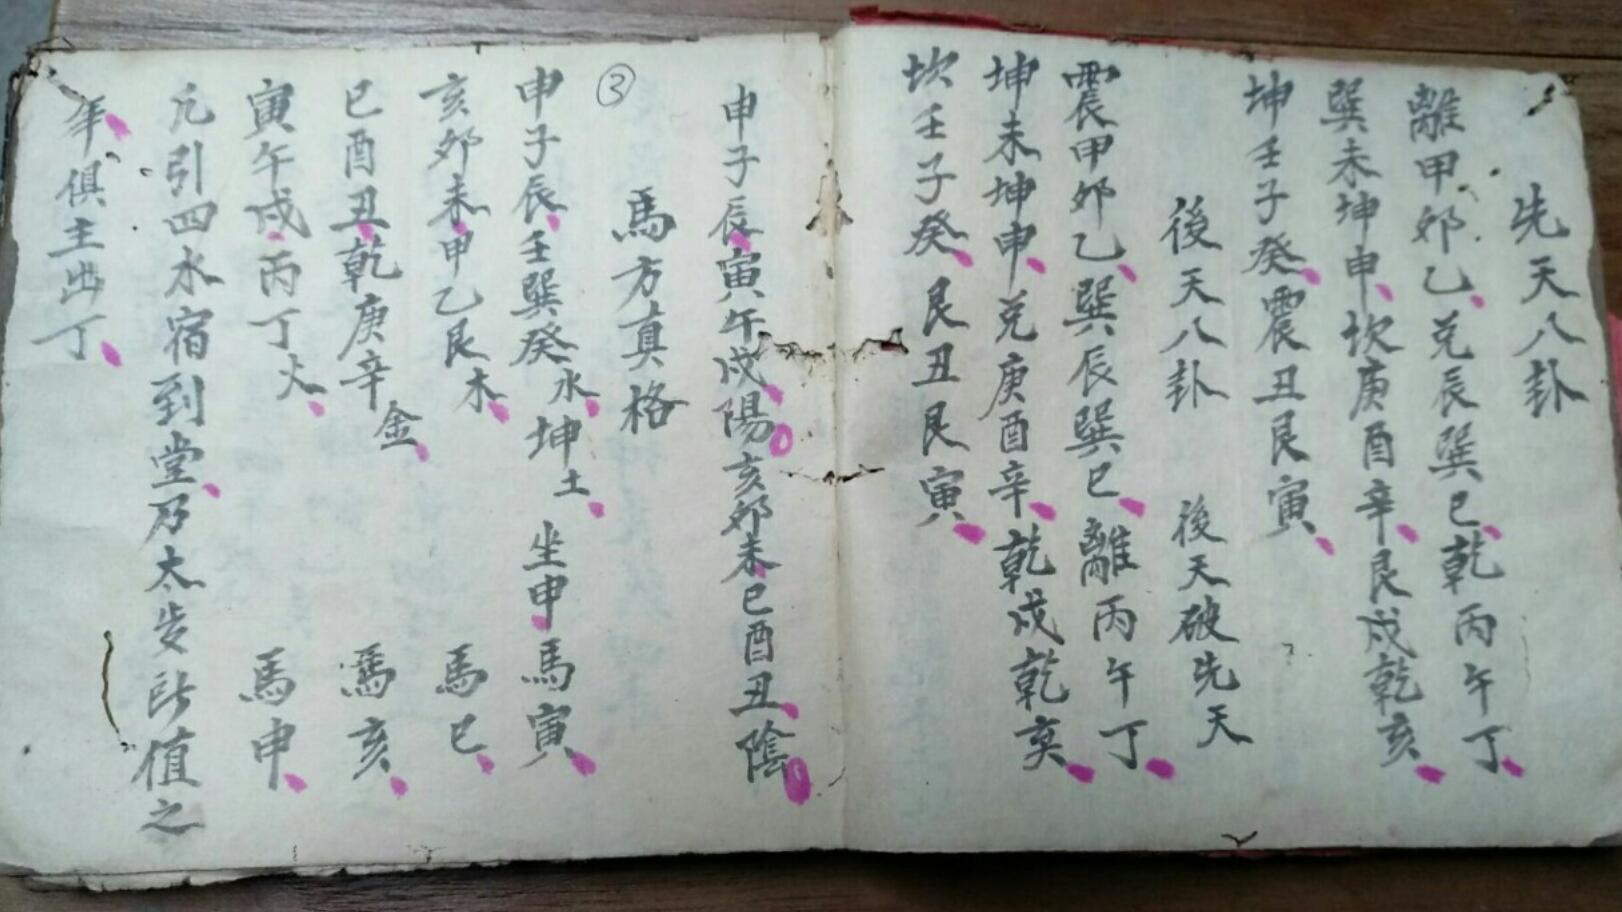 先天八卦
離甲卯乙兌辰巽巳乾丙午丁
巽未坤申坎庚酉辛艮戍乾亥
坤壬子癸震丑艮寅
後天八卦 後天破先天
震甲卯乙巽辰巽巳離丙午丁
坤未坤申兌庚酉辛乾戍乾亥
坎壬子癸艮丑艮寅
申子辰寅午戍陽亥卯未巳酉丑陰
馬方真格
③
申子辰壬巽癸水坤土坐申馬寅
亥卯未甲乙艮木 馬巳
巳酉丑乾庚辛金 馬亥
寅午戍丙丁火 馬申
凡引四水宿到堂乃太歩所值之
年俱主出丁